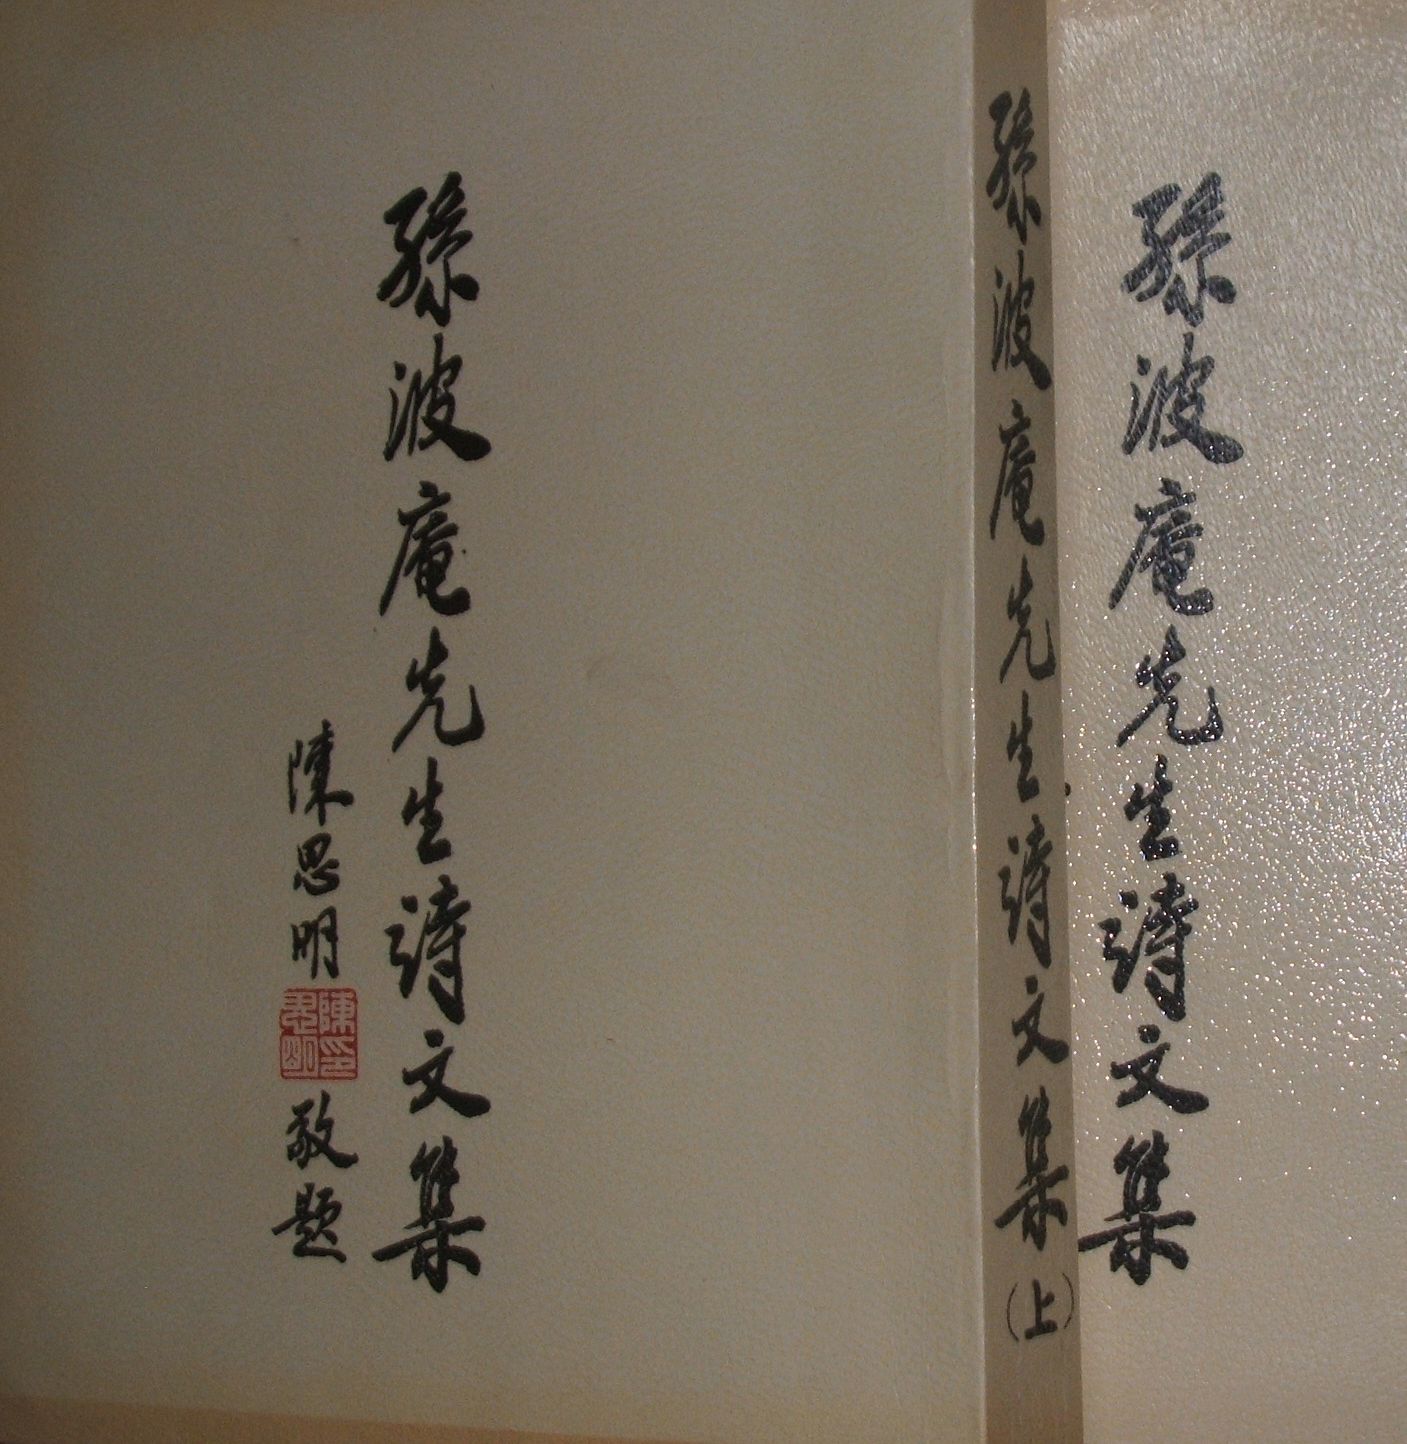 孫波庵先生詩文集
孫波庵先生詩文集(上)
孫波庵先生詩文集
陳思明
陳印
思明
敬題